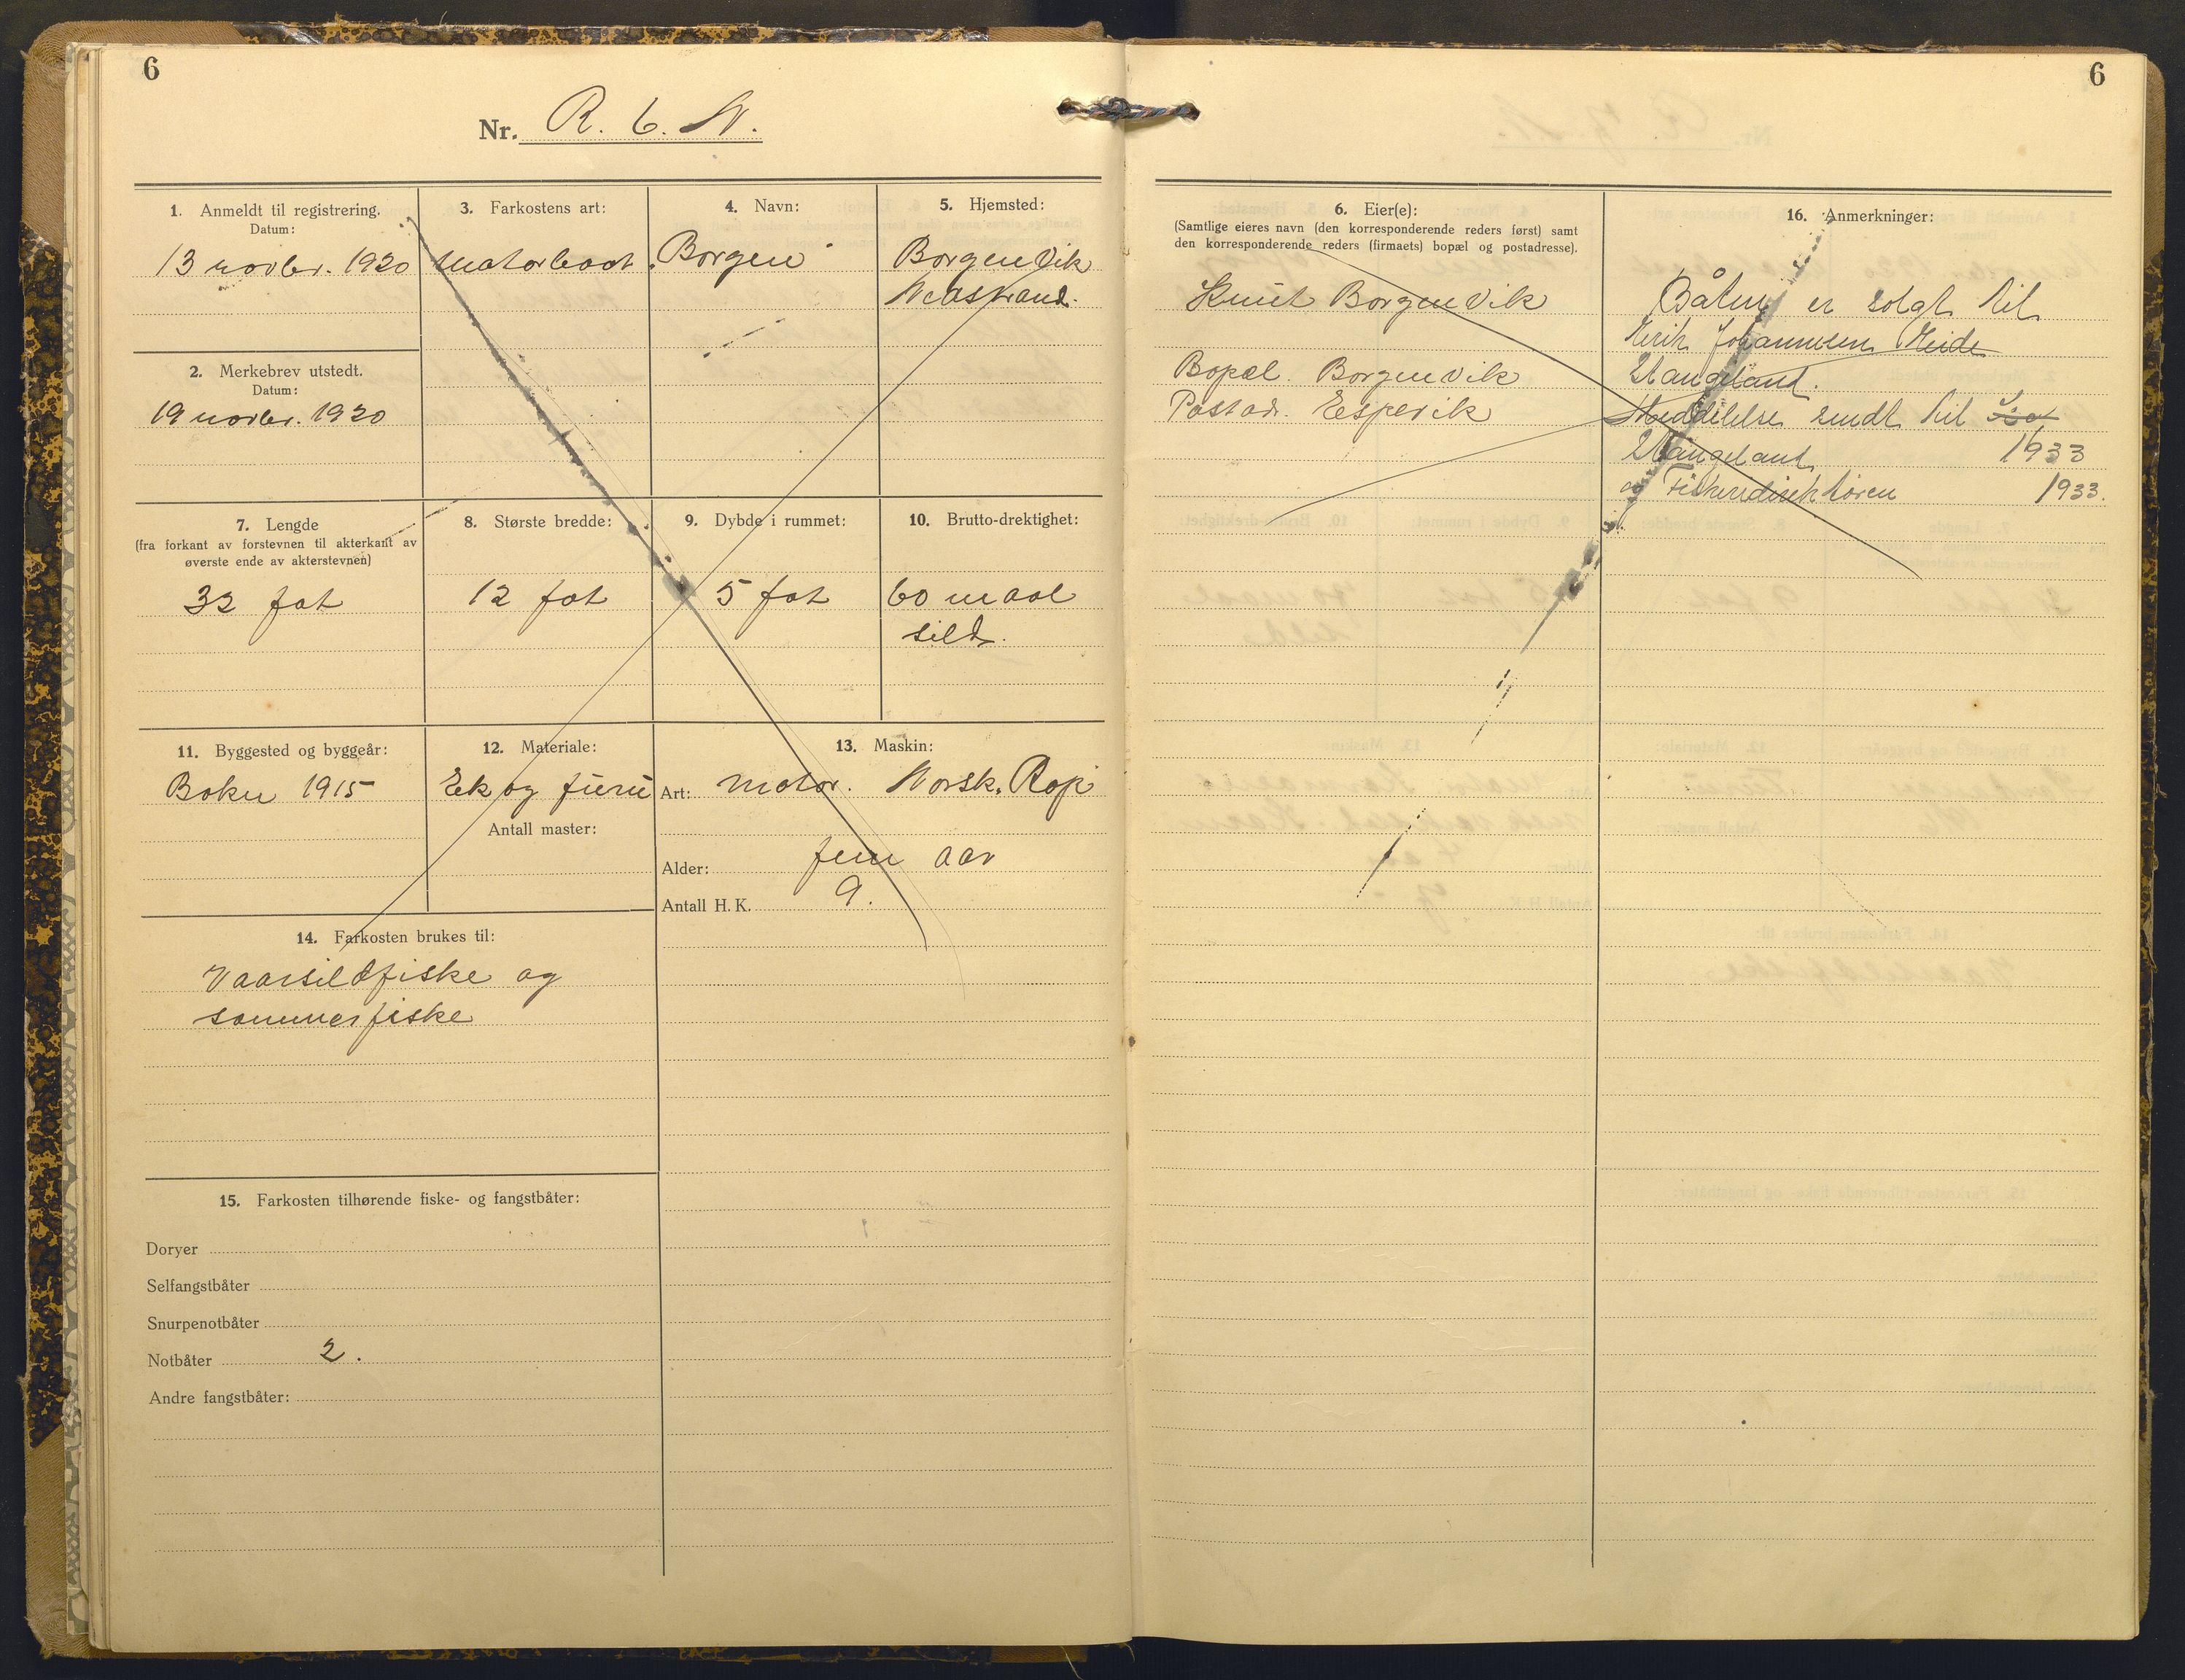 6
Nr. R. 6. N.
1. Anmeldt til registrering.
Datum:
13 novbr. 1920
2. Merkebrev utstedt.
Datum:
19 novbr. 1920
3. Farkostens art:
Motorbaat
4. Navn:
Borgen
5. Hjemsted:
Borgenvik
Nedstrand.
7. Lengde
(fra forkant av forstevnen til akterkant av
øverste ende av akterstevnen)
32 fot
8. Største bredde:
12 fot
9. Dybde i rummet:
5 fot
10. Brutto-drektighet:
60 maal
sild.
11. Byggested og byggeår:
Bokn 1915
12. Materiale:
Ek og furu
Antall master:
13. Maskin:
Art: motor. Norsk. Rap
Alder: fem aar
Antall H. K. 9.
14. Farkosten brukes til:
Vaarsildfiske og
sommerfiske
15. Farkosten tilhørende fiske- og fangstbåter:
Doryer
Selfangstbåter
Snurpenotbåter
Notbåter 2.
Andre fangstbåter:
6
6. Eier(e):
(Samtlige eieres navn (den korresponderende reders først) samt
den korresponderende reders (firmaets) bopæl og postadresse).
Knut Borgenvik
Bopæl. Borgenvik
Postadr. Espevik
16. Anmerkninger:
Båten er solgt til
Johannesen
Meddelelse sendt til
1933
og Fiskeridirektøren 1933.